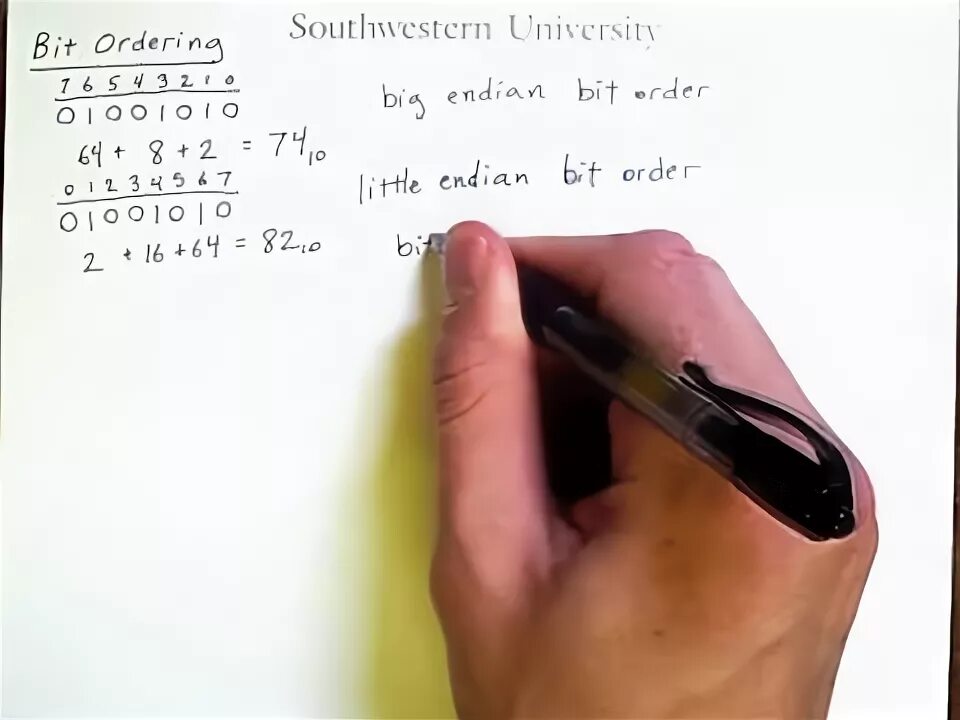 Southwestern University
Bit Ordering
7 6 5 4 3 2 1 0
0 1 0 0 1 0 1 0
big endian bit order
64 + 8 + 2 = 74₁₀
0 1 2 3 4 5 6 7
0 1 0 0 1 0 1 0
little endian bit order
2 + 16 + 64 = 82₁₀
bit